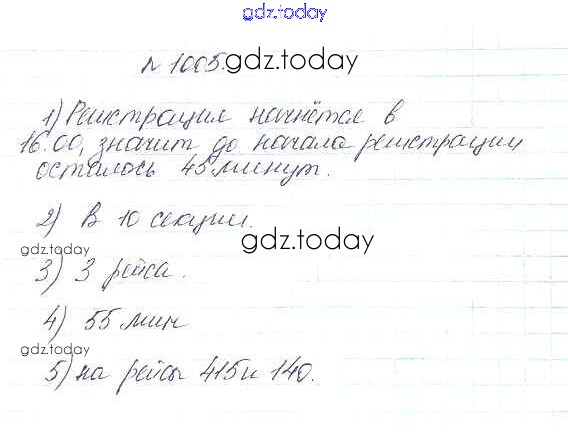 gdz.today
№ 1005. gdz.today
1) Регистрация начнётся в
16.00, значит до начала регистрации
осталось 45 минут.
2) В 10 секции.
gdz.today
gdz.today
3) 3 рейса.
4) 55 мин
gdz.today
5) на рейсы 415 и 140.